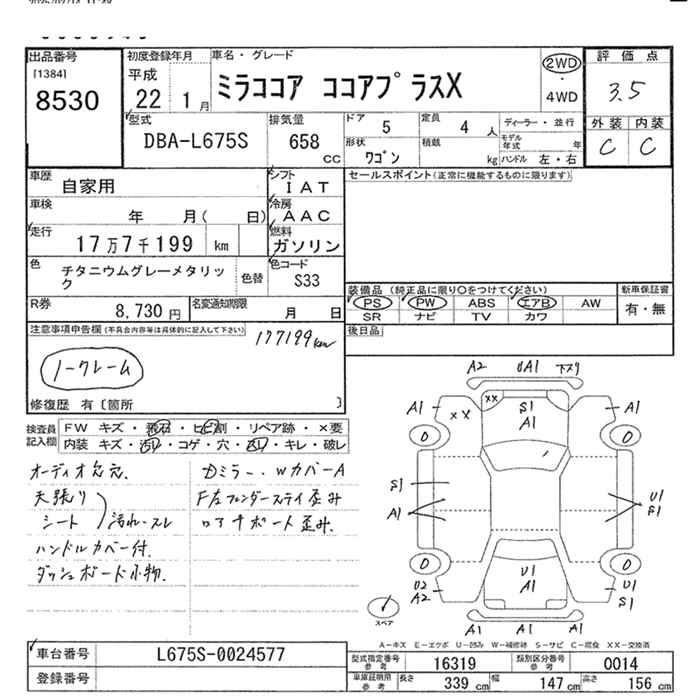 出品番号
[1384]
8530
初度登録年月
平成
22 1月
車名・グレード
ミラココア ココアプラスX
2WD
4WD
評価点
3.5
外装 内装
C C
型式
DBA-L675S
排気量
658
CC
ドア 5
定員 4 人
形状 ワゴン
積載 kg
ディーラー・並行
モデル年式 年
ハンドル 左・右
車歴
自家用
シフト
IAT
車検
年 月( 日)
冷房
AAC
走行
17万7千199 km
燃料
ガソリン
色
チタニウムグレーメタリック
色替
色コード
S33
R券
8,730 円
名変通知期限
月 日
セールスポイント(正常に機能するものに限ります)
装備品 (純正品に限り○をつけてください)
PS PW ABS エアB AW
SR ナビ TV カワ
新車保証書
有・無
後日品
注意事項申告欄(不具合内容等は具体的に記入して下さい)
177199km
ノークレーム
修復歴 有 [箇所 ]
検査員記入欄
FW キズ・飛石・ヒビ割・リペア跡・×要
内装 キズ・汚れ・コゲ・穴・スリ・キレ・破レ
オーディオ欠品.
天張り
シート 汚れ・スレ
ハンドルカバー付.
ダッシュボード小物.
Dミラー・WカバーA
F左フェンダーステイ歪み
ロアサポート歪み.
A2 UA1 下スリ
A1 XX XX S1 A1 A1
S1
A1
U1
S1
U1
A1
U2
A2
U1
S1
A1 A1 A1
スペア
A-キズ E-エクボ U-凹み W-補修跡 S-サビ C-腐食 XX-交換済
車台番号
L675S-0024577
登録番号
型式指定番号 参考
16319
類別区分番号 参考
0014
車庫証明用 参考
長さ 339 cm
幅 147 cm
高さ 156 cm